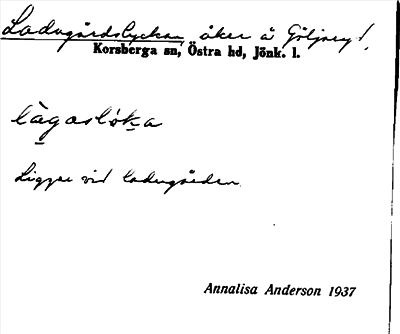 Ladugårdslyckan, åker å Göljaryd.
Korsberga sn, Östra hd, Jönk. l.
Ligger vid ladugården.
Annalisa Anderson 1937